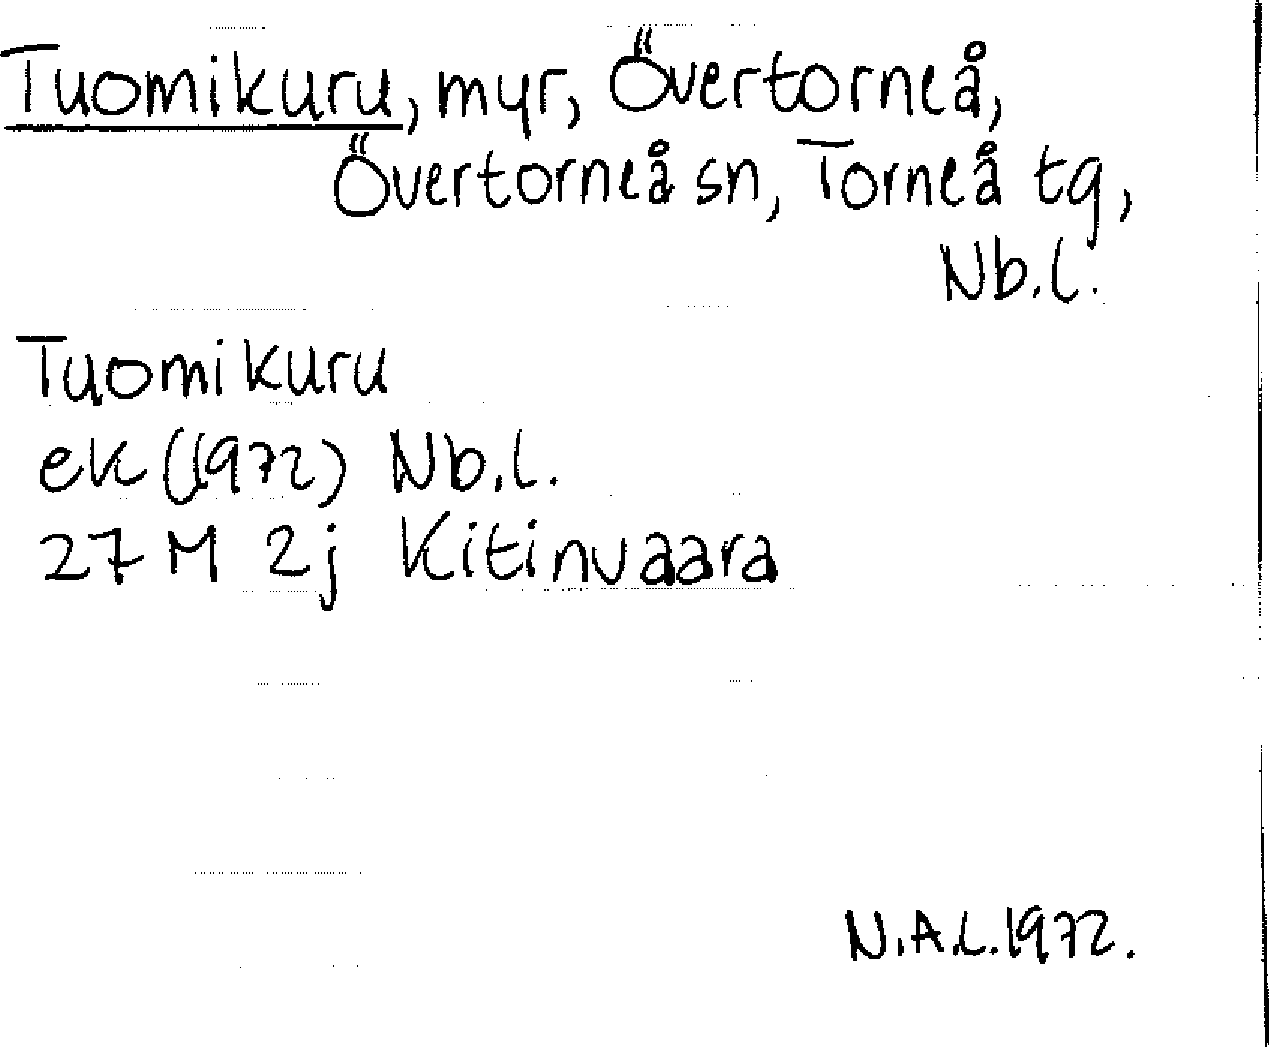 Tuomikuru, myr, Övertorneå,
Övertorneå sn, Torneå tg,
Nb.l.
Tuomikuru
ek (1972) Nb.l.
27 M 2j Kitinvaara
N.A.L. 1972.